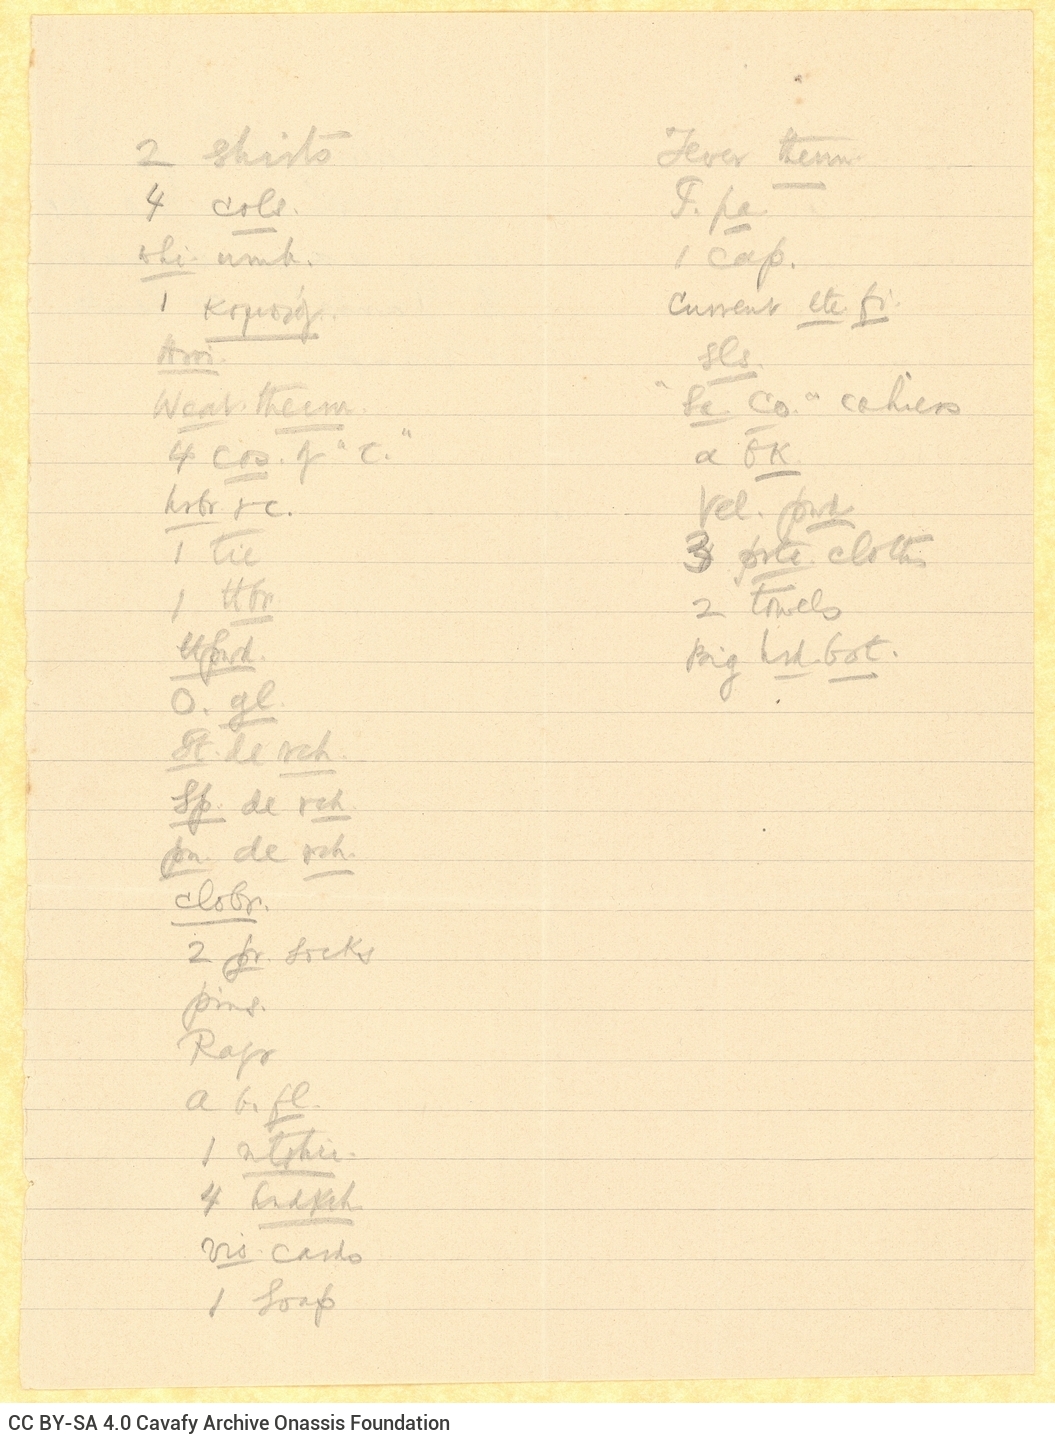 2 shirts
4 cols.
whi. umb.
1
Weat. therm.
4 cos. of "C."
hrbr &c.
1 tie
1 ttbr
ttpwd.
O. gl.
St. de rch.
Sp. de rch.
pn. de rch.
clobr.
2 pr. socks
pins.
Rags
a b. fl.
1 ntshir.
4 hndkch
vis. cards
1 Soap
Fever therm.
F. pa
1 cap.
Current lte. fi.
sls.
"Se. Co." cahiers
a bk
Vel. pwd
3 prte. cloths
2 towels
Big hd. bot.
CC BY-SA 4.0 Cavafy Archive Onassis Foundation